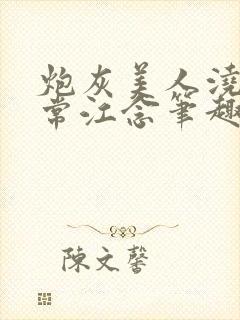 炮灰美人浇
常江念笔趣
陳文馨